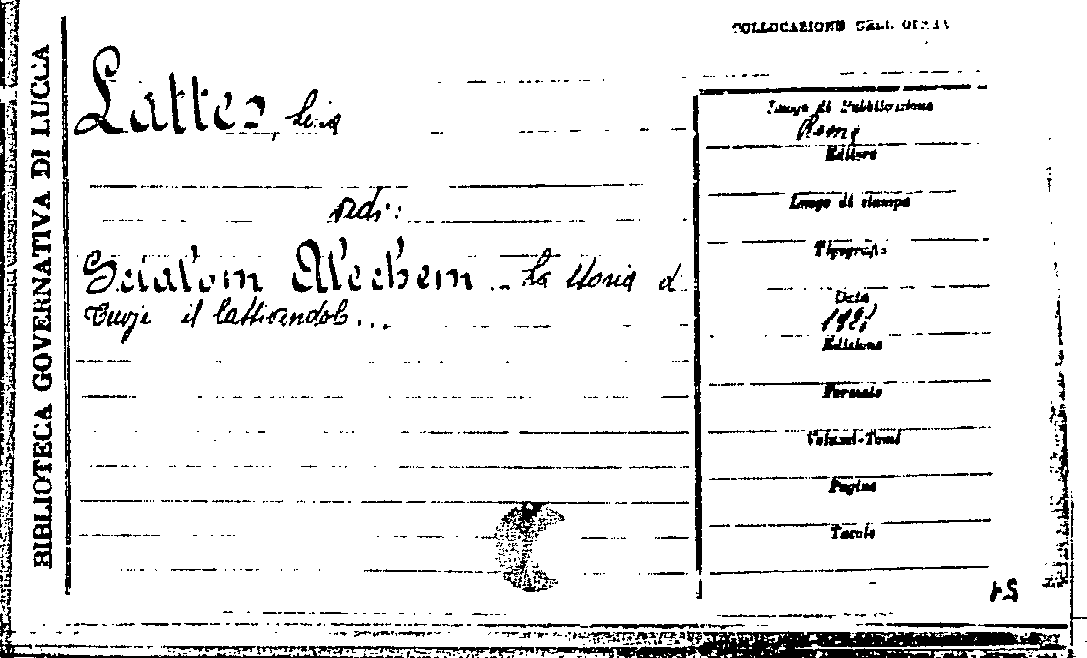 BIBLIOTECA GOVERNATIVA DI LUCCA
COLLOCAZIONE DELL'OPERA
Lattes, Lina
vedi:
Scialom Alechem .. La storia d
Tewje il lattivendolo...
Luogo di Pubblicazione
Roma
Editore
Luogo di stampa
Tipografia
Data
Edizione
Formato
Volumi-Tomi
Pagine
Tavole